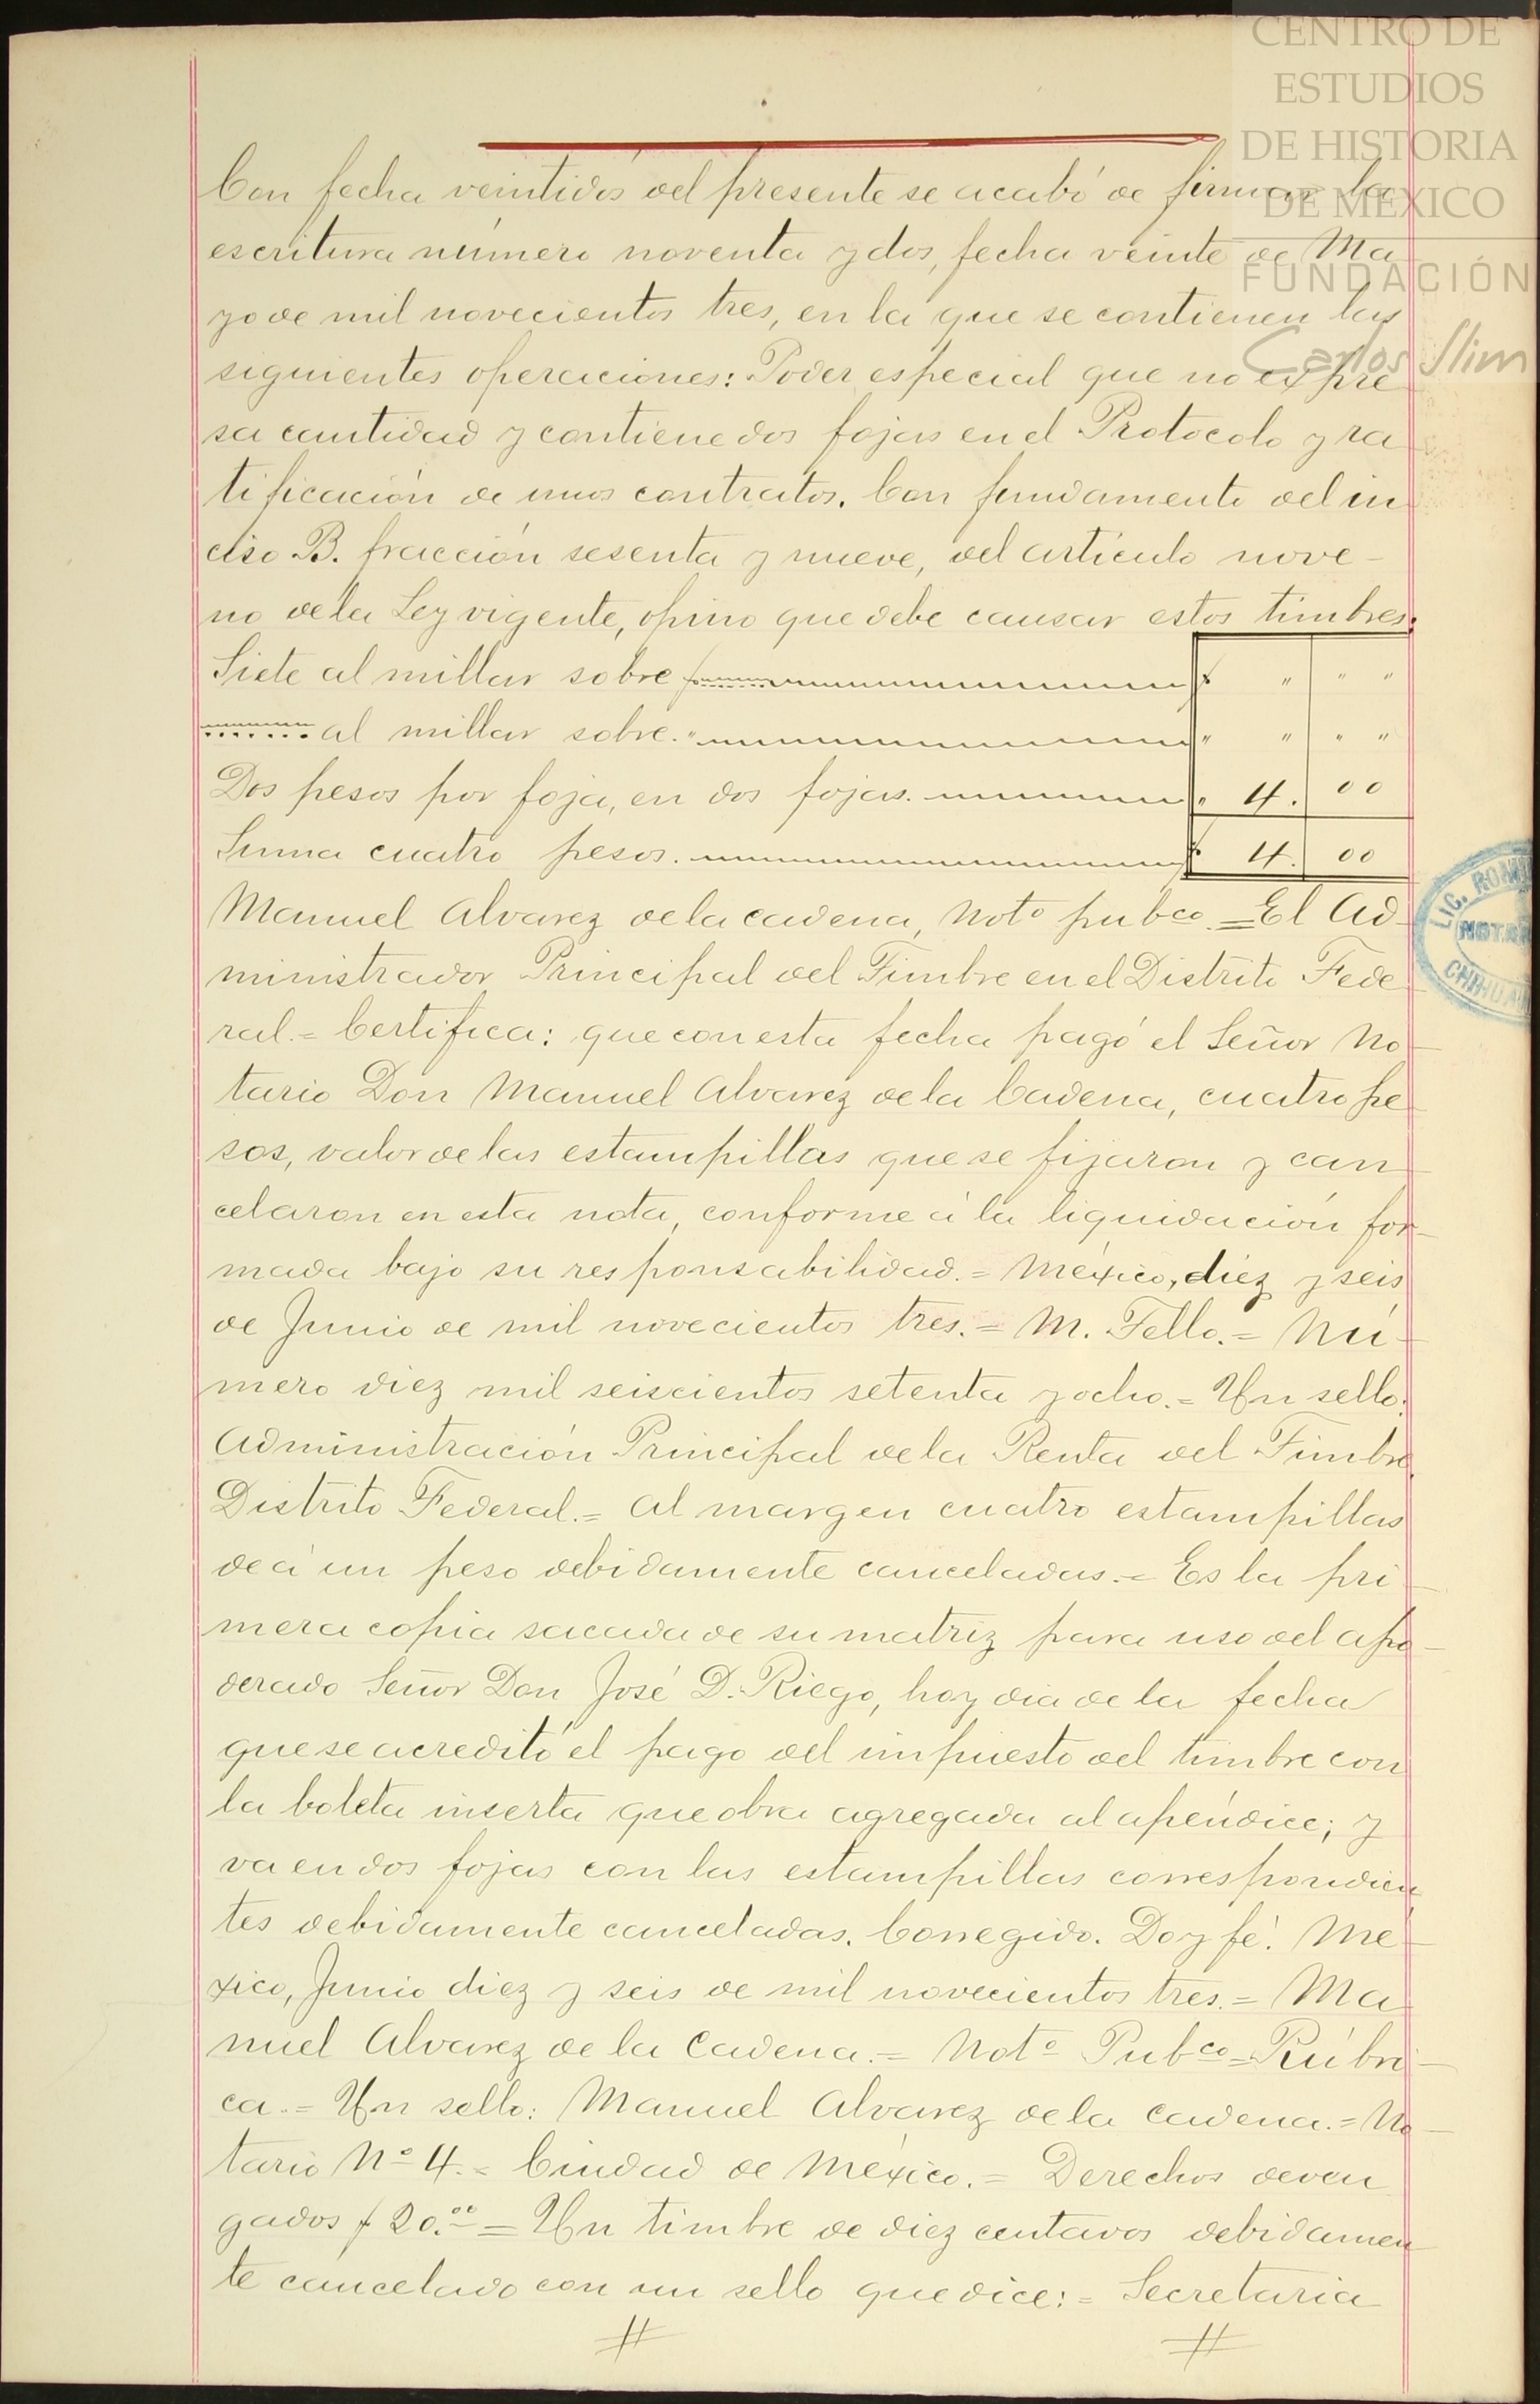 CENTRO DE
ESTUDIOS
DE HISTORIA
DE MEXICO
FUNDACIÓN
Carlos Slim
Con fecha veintidos del presente se acabó de firmar la
escritura número noventa y dos, fecha veinte de Ma
yo de mil novecientos tres, en la que se contienen las
siguientes operaciones: Poder especial que no expre
sa cantidad y contiene dos fojas en el Protocolo y ra
tificación de unos contratos. Con fundamento del in
ciso B. fracción sesenta y nueve, del artículo nove-
no de la Ley vigente, opino que debe causar estos timbres:
Siete al millar sobre $ " " "
al millar sobre. " " " " "
Dos pesos por foja, en dos fojas. " 4. 00
Suma cuatro pesos. $ 4. 00
Manuel Alvarez de la Cadena, Notº pubco. = El Ad-
ministrador Principal del Timbre en el Distrito Fede
ral. = Certifica: que con esta fecha pagó el Señor No-
tario Don Manuel Alvarez de la Cadena, cuatro pe
sos, valor de las estampillas que se fijaron y can-
celaron en esta nota, conforme á la liquidación for-
mada bajo su responsabilidad. = México, diez y seis
de Junio de mil novecientos tres. = M. Tello. = Nú-
mero diez mil seiscientos setenta y ocho. = Un sello:
Administración Principal de la Renta del Timbre
Distrito Federal. = Al margen cuatro estampillas
de á un peso debidamente canceladas. = Es la pri-
mera copia sacada de su matriz para uso del apo-
derado Señor Don José D. Riego, hoy dia de la fecha
que se acreditó el pago del impuesto del timbre con
la boleta inserta que obra agregada al apéndice; y
va en dos fojas con las estampillas correspondien
tes debidamente canceladas. Corregido. Doy fé. Mé-
xico, Junio diez y seis de mil novecientos tres. = Ma
nuel Alvarez de la Cadena. = Notº Pubco = Rúbri-
ca. = Un sello: Manuel Alvarez de la Cadena. = No-
tario Nº 4. = Ciudad de México. = Derechos deven
gados $ 20.00 = Un timbre de diez centavos debidamen
te cancelado con un sello que dice: = Secretaria
LIC. ROM
NOTA
CHIHUA